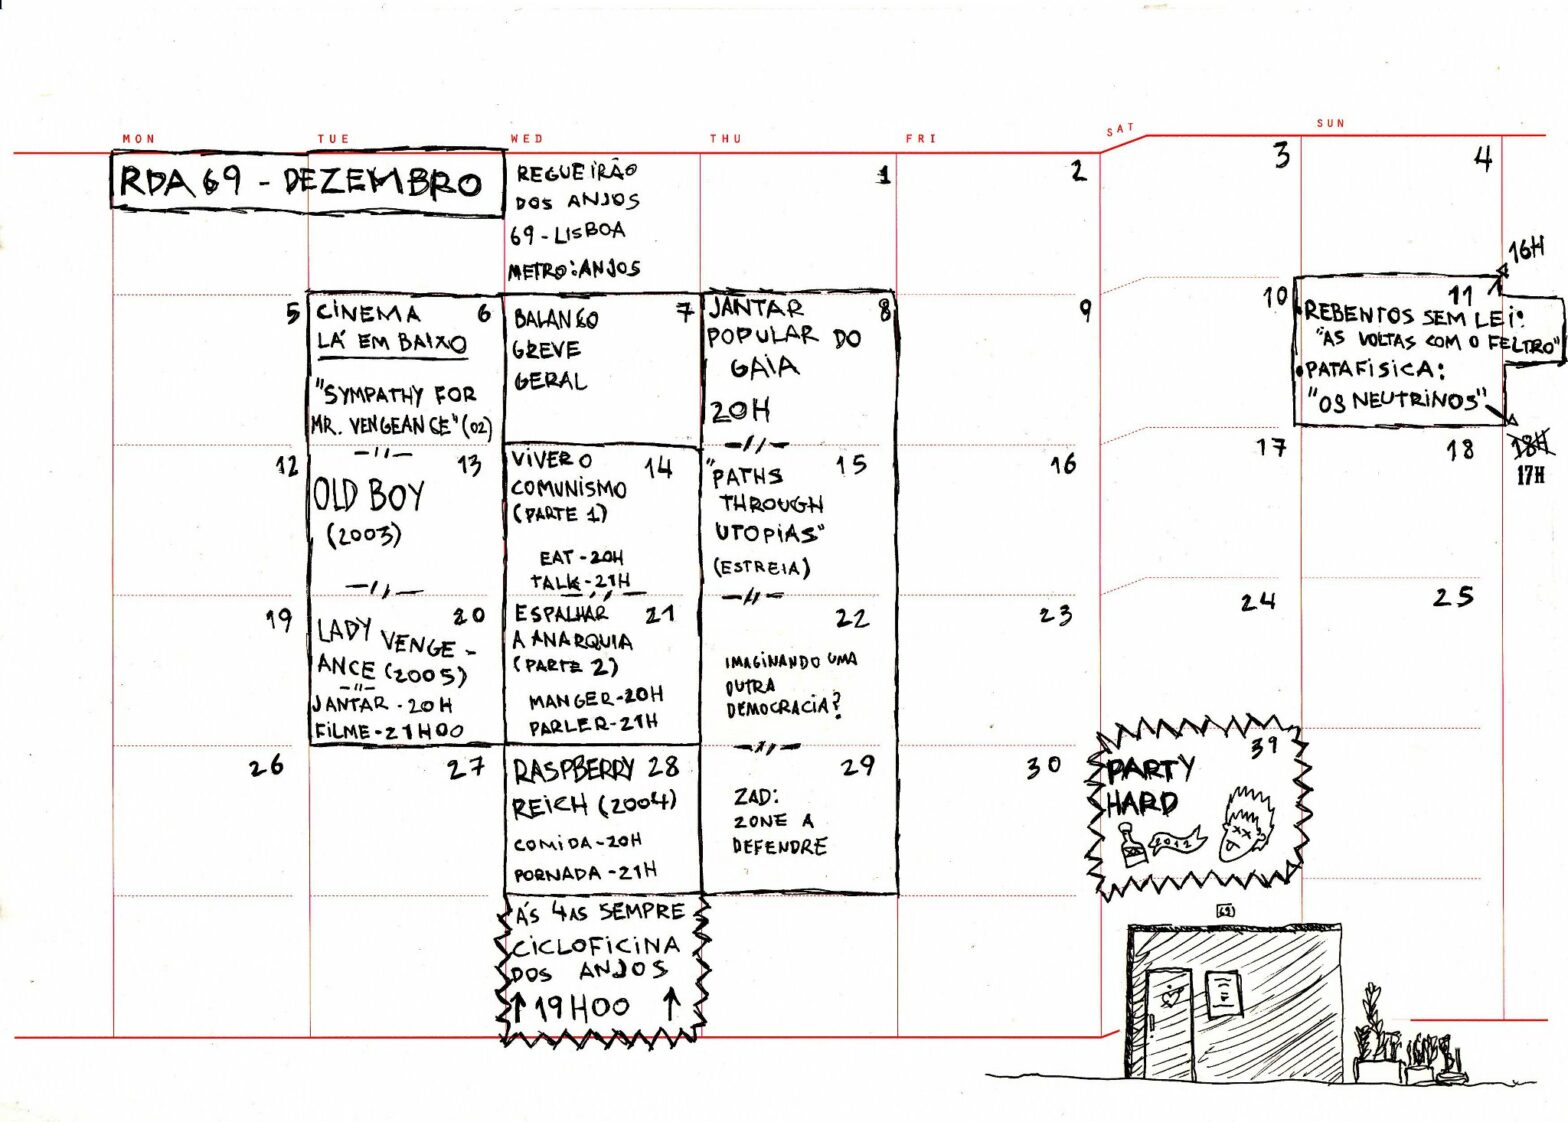 MON TUE WED THU FRI SAT SUN
RDA 69 - DEZEMBRO
REGUEIRÃO
DOS ANJOS
69 - LISBOA
METRO: ANJOS
1
2
3
4
5
CINEMA 6
LÁ EM BAIXO
"SYMPATHY FOR
MR. VENGEANCE" (02)
BALANÇO 7
GREVE
GERAL
JANTAR 8
POPULAR DO
GAIA
20H
9
10
16H
11
REBENTOS SEM LEI:
"AS VOLTAS COM O FELTRO"
PATAFISICA:
"OS NEUTRINOS"
18H
17H
12
13
OLD BOY
(2003)
VIVER O 14
COMUNISMO
(PARTE 1)
EAT - 20H
TALK - 21H
15
"PATHS
THROUGH
UTOPIAS"
(ESTREIA)
16
17
18
19
20
LADY VENGE-
ANCE (2005)
JANTAR - 20H
FILME - 21H00
ESPALHAR 21
A ANARQUIA
(PARTE 2)
MANGER - 20H
PARLER - 21H
22
IMAGINANDO UMA
OUTRA
DEMOCRACIA?
23
24
25
26
27
RASPBERRY 28
REICH (2004)
COMIDA - 20H
PORNADA - 21H
29
ZAD:
ZONE A
DEFENDRE
30
39
PARTY
HARD
2012
ÁS 4AS SEMPRE
CICLOFICINA
DOS ANJOS
↑ 19H00 ↑
69